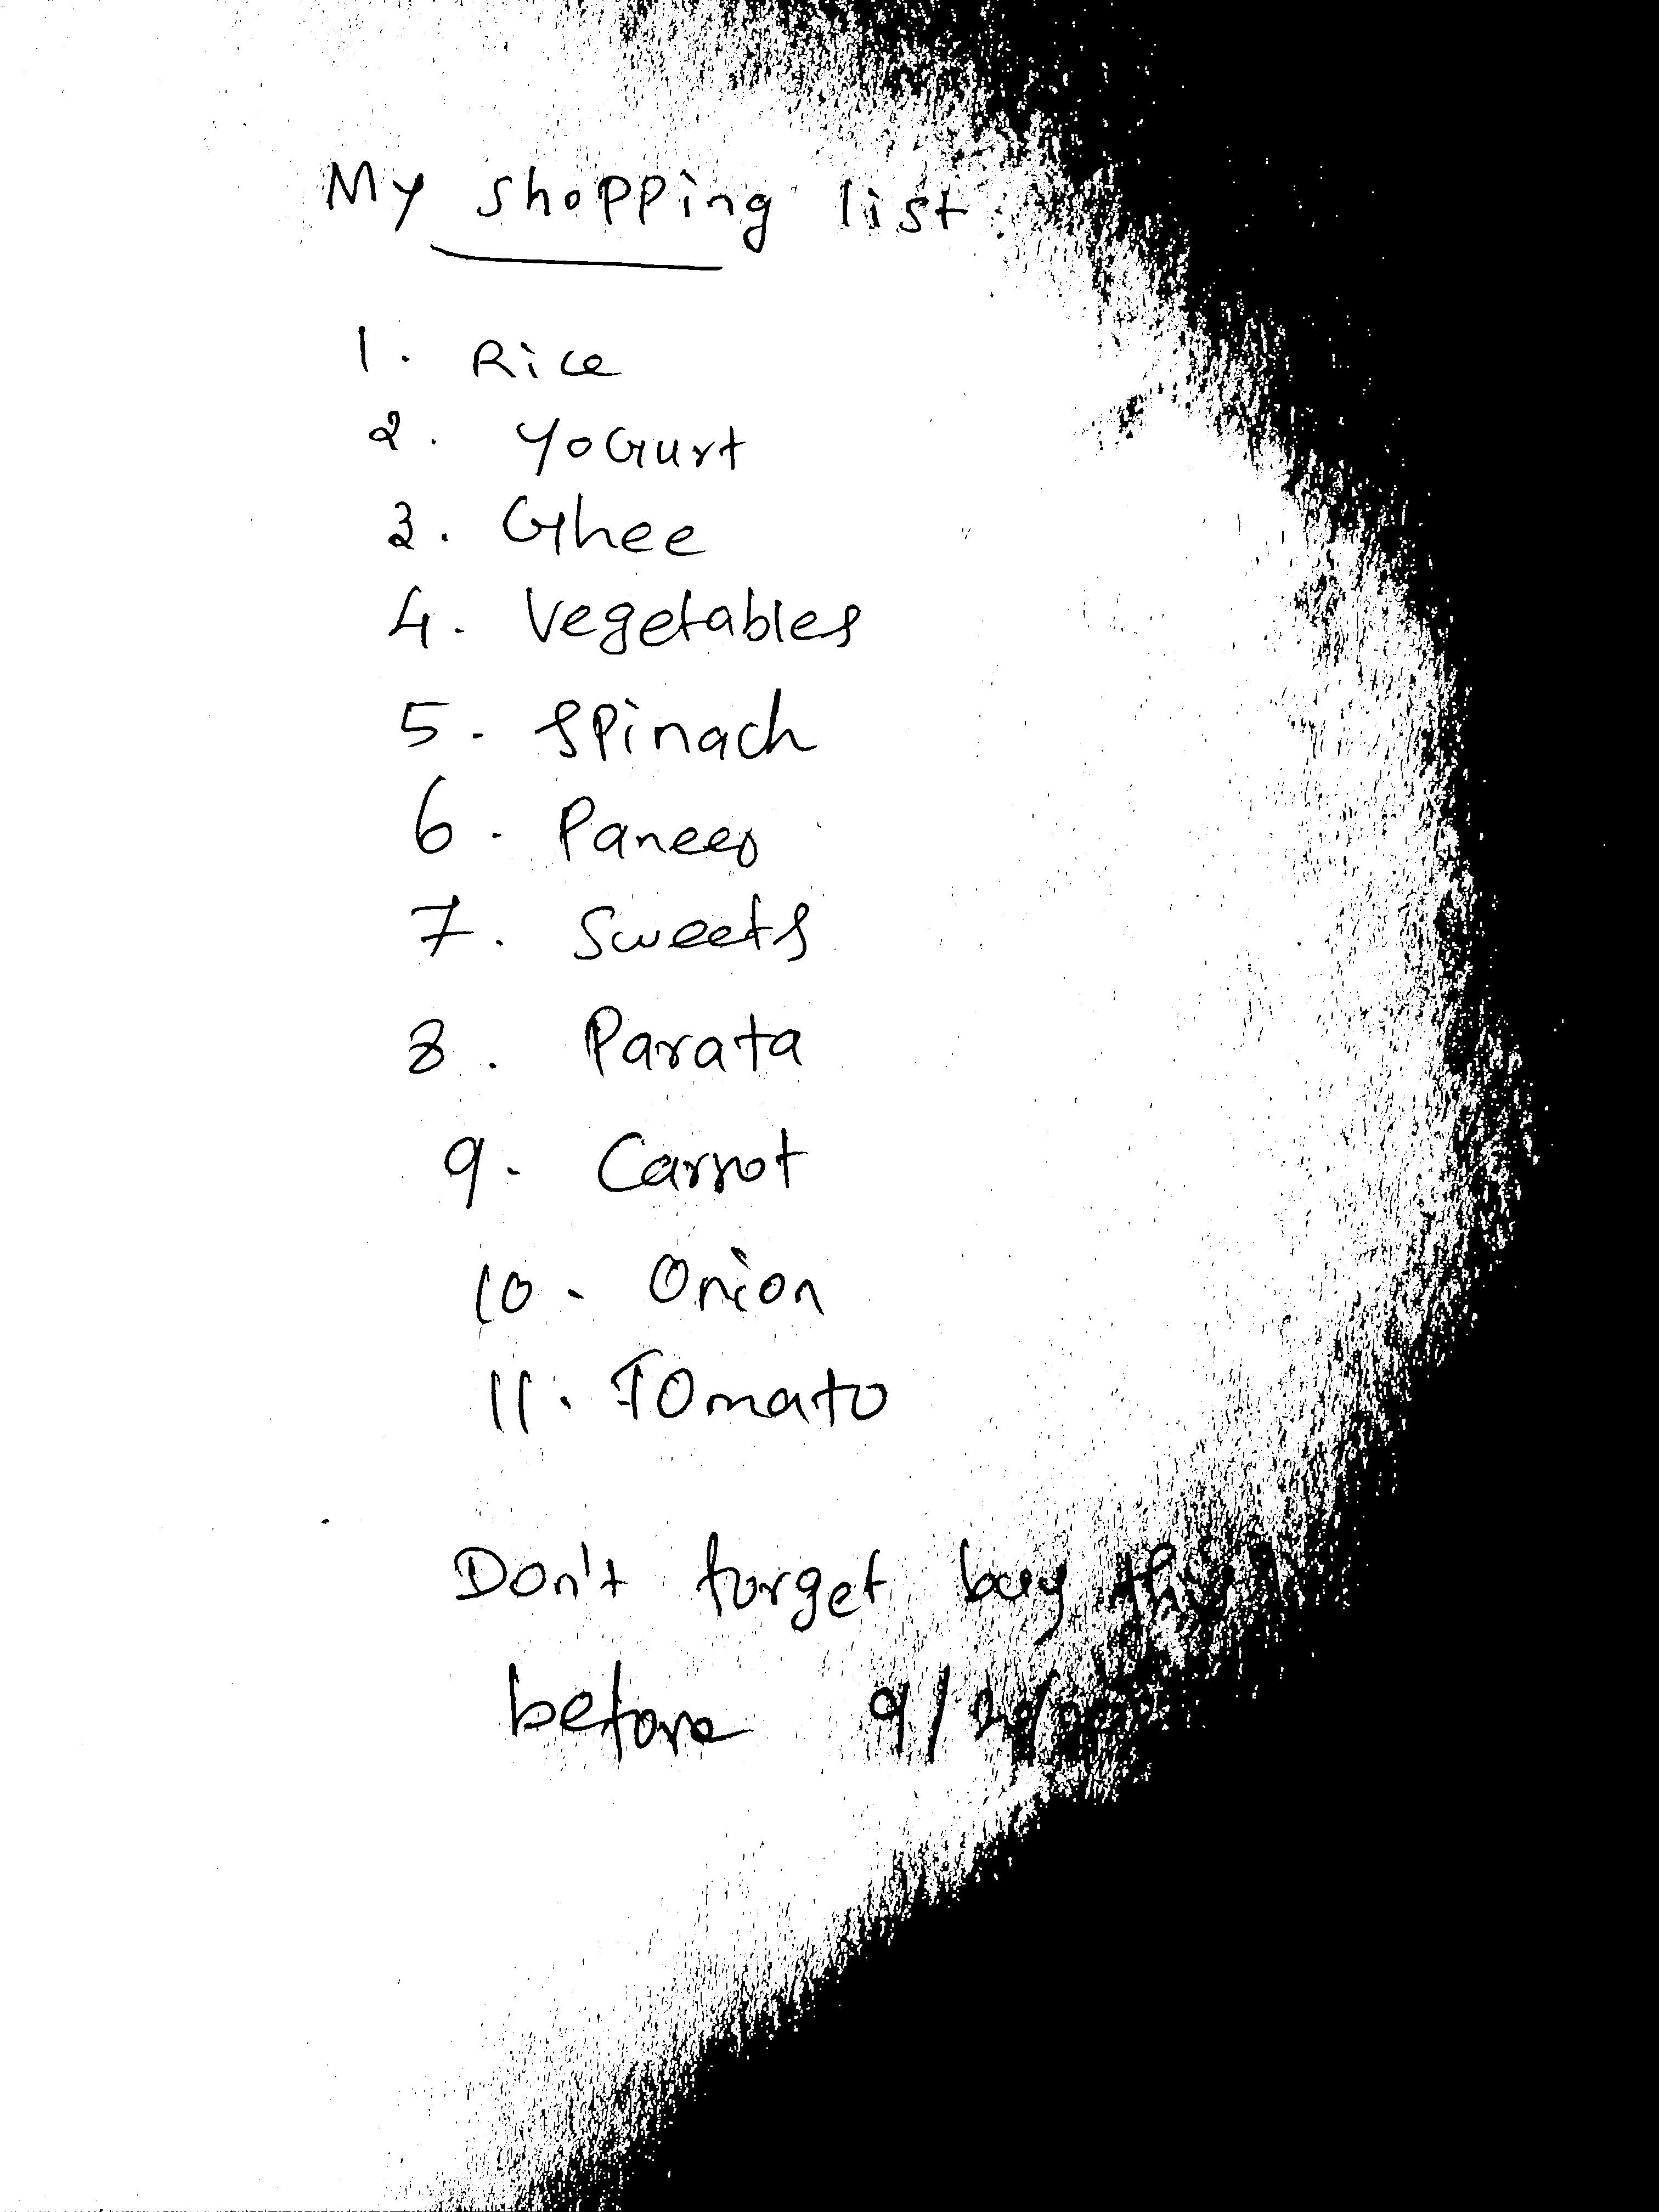 My shopping list:
1. Rice
2. YoGurt
3. Ghee
4. Vegetables
5. Spinach
6. Paneer
7. Sweets
8. Parata
9. Carrot
10. Onion
11. TOmato
Don't forget buy
before